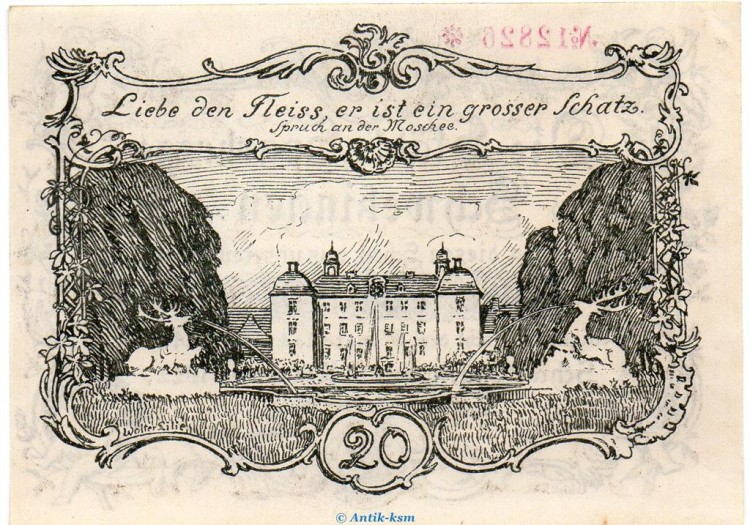 №12826 *
Liebe den Fleiss, er ist ein grosser Schatz.
Spruch an der Moschee.
Walter
20
© Antik-ksm